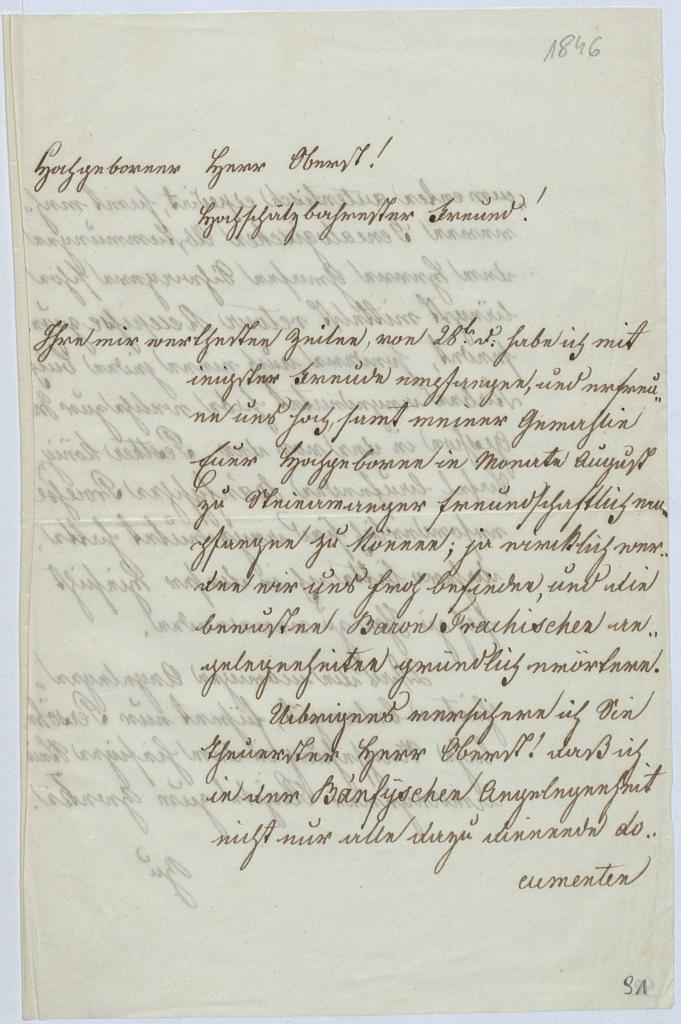 1846
Hochgeborner Herr Oberst!
Hochschätzbahrester Freund!
Ihre mir werthesten Zeilen, von 28t. d: habe ich mit
inigster Freude empfangen, und erfreu„
ne uns hoch, samt meiner Gemahlin
Euer Hochgeboren in Monate August
zu Steinamanger freundschaftlich em„
pfangen zu können; ja wirklich wer„
den wir uns froh befinden, und die
bewusten Baron Prachischen An„
gelegenheiten gründlich erörtern.
Uibrigens versichere ich Sie
theuerster Herr Oberst! daß ich
in der Banfyschen Angelegenheit
nicht nur alle dazu dienende do„
cumenten
91